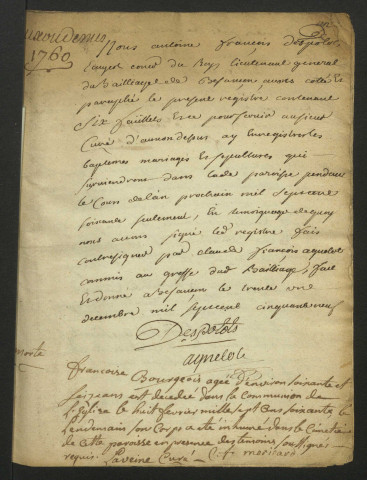 auxon dessus
1760
Nous antoine françois despotots
Lieutenant general
du Bailliage de Besançon avons cotté et
paraphé le present registre contenant
Six feuillets Et ce pour servir au sieur
Curé d'auxon dessus a y Enregistrer les
baptemes mariages Et sepultures qui
surviendront dans lade paroisse pendant
le Cours de lan prochain mil sept cent
soixante seulement, En temoignage de quoy
nous avons signé led registre fait
contresigner par claude françois aquelot
commis au greffe dud Bailliage, fait
Et donné a besançon le trente une
decembre mil sept cent cinquante neuf
Despotots
aquelot
morte
francoise Bourgeois agée d'environ soixante et
ans est decedée dans la Communion de
L'Eglise le huit fevrier mille sept Cens soixante, le
Lendemain son Corps a été inhumé dans le Cimetière
de Cette paroisse en presence des temoins soussignés
requis. Curé